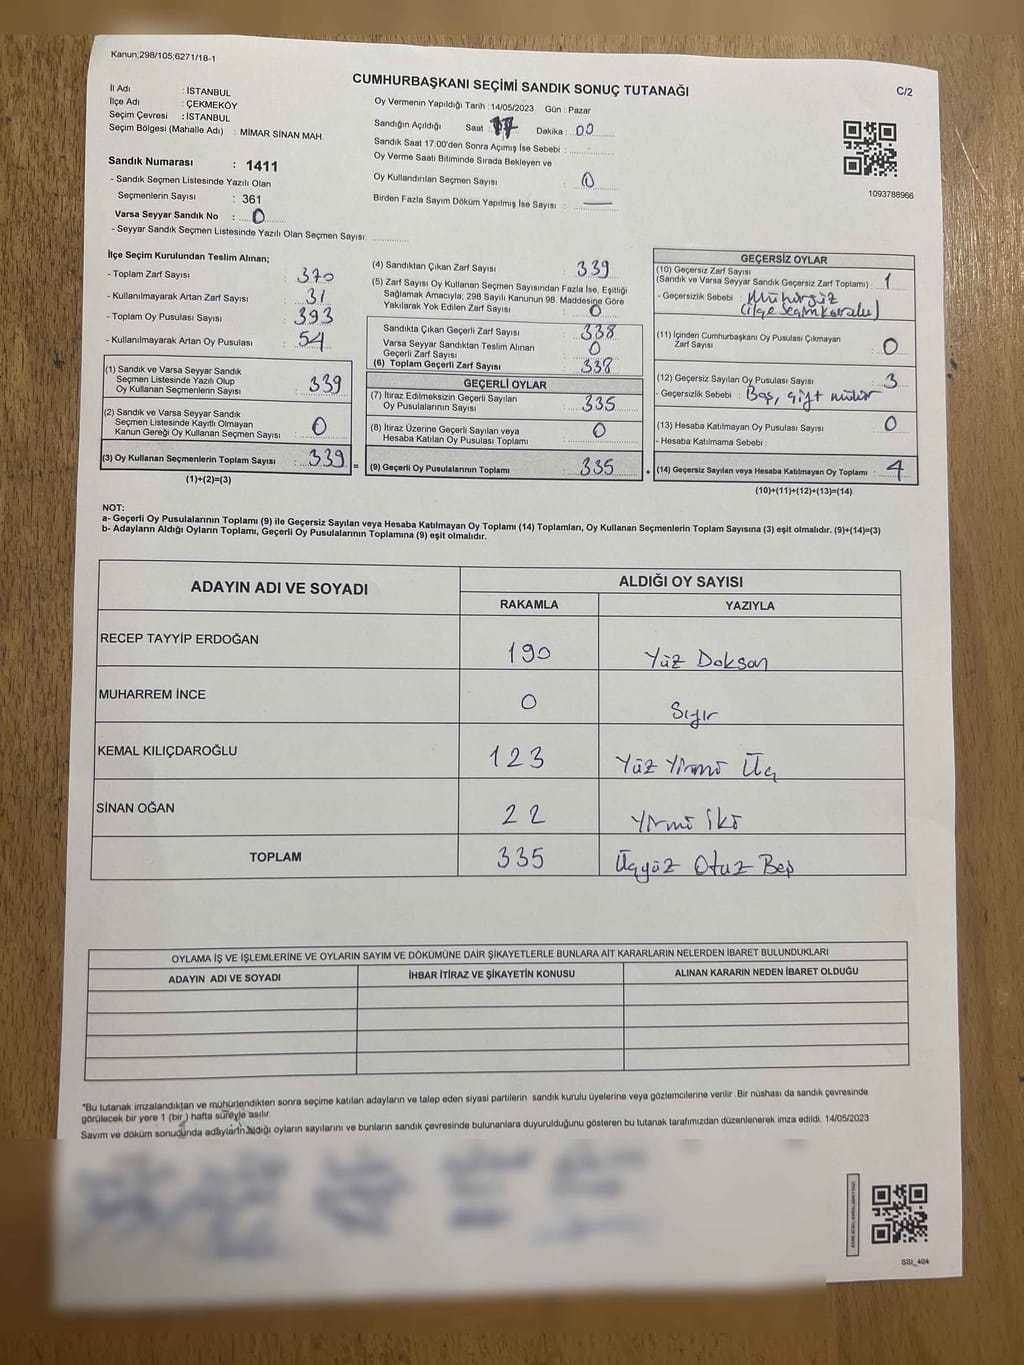 Kanun;298/105;6271/18-1
CUMHURBAŞKANI SEÇİMİ SANDIK SONUÇ TUTANAĞI
C/2
İl Adı : İSTANBUL
İlçe Adı : ÇEKMEKÖY
Seçim Çevresi : İSTANBUL
Seçim Bölgesi (Mahalle Adı) : MİMAR SİNAN MAH.
Sandık Numarası : 1411
- Sandık Seçmen Listesinde Yazılı Olan
Seçmenlerin Sayısı : 361
Varsa Seyyar Sandık No : 0
- Seyyar Sandık Seçmen Listesinde Yazılı Olan Seçmen Sayısı:
Oy Vermenin Yapıldığı Tarih :14/05/2023 Gün : Pazar
Sandığın Açıldığı Saat : 17 Dakika : 00
Sandık Saat 17:00'den Sonra Açımış İse Sebebi :
Oy Verme Saati Bitiminde Sırada Bekleyen ve
Oy Kullandırılan Seçmen Sayısı : 0
Birden Fazla Sayım Döküm Yapılmış İse Sayısı : —
1093788966
İlçe Seçim Kurulundan Teslim Alınan;
- Toplam Zarf Sayısı : 370
- Kullanılmayarak Artan Zarf Sayısı : 31
- Toplam Oy Pusulası Sayısı : 393
- Kullanılmayarak Artan Oy Pusulası : 54
(1) Sandık ve Varsa Seyyar Sandık
Seçmen Listesinde Yazılı Olup
Oy Kullanan Seçmenlerin Sayısı : 339
(2) Sandık ve Varsa Seyyar Sandık
Seçmen Listesinde Kayıtlı Olmayan
Kanun Gereği Oy Kullanan Seçmen Sayısı : 0
(3) Oy Kullanan Seçmenlerin Toplam Sayısı : 339 =
(1)+(2)=(3)
(4) Sandıktan Çıkan Zarf Sayısı : 339
(5) Zarf Sayısı Oy Kullanan Seçmen Sayısından Fazla İse, Eşitliği
Sağlamak Amacıyla; 298 Sayılı Kanunun 98. Maddesine Göre
Yakılarak Yok Edilen Zarf Sayısı : 0
Sandıkta Çıkan Geçerli Zarf Sayısı : 338
Varsa Seyyar Sandıktan Teslim Alınan
Geçerli Zarf Sayısı : 0
(6) Toplam Geçerli Zarf Sayısı : 338
GEÇERLİ OYLAR
(7) İtiraz Edilmeksizin Geçerli Sayılan
Oy Pusulalarının Sayısı : 335
(8) İtiraz Üzerine Geçerli Sayılan veya
Hesaba Katılan Oy Pusulası Toplamı : 0
(9) Geçerli Oy Pusulalarının Toplamı : 335 +
GEÇERSİZ OYLAR
(10) Geçersiz Zarf Sayısı
(Sandık ve Varsa Seyyar Sandık Geçersiz Zarf Toplamı) : 1
- Geçersizlik Sebebi : Mühürsüz
(ilçe seçim kurulu)
(11) İçinden Cumhurbaşkanı Oy Pusulası Çıkmayan
Zarf Sayısı : 0
(12) Geçersiz Sayılan Oy Pusulası Sayısı : 3
- Geçersizlik Sebebi : Boş, çift mühür
(13) Hesaba Katılmayan Oy Pusulası Sayısı : 0
- Hesaba Katılmama Sebebi :
(14) Geçersiz Sayılan veya Hesaba Katılmayan Oy Toplamı : 4
(10)+(11)+(12)+(13)=(14)
NOT:
a- Geçerli Oy Pusulalarının Toplamı (9) ile Geçersiz Sayılan veya Hesaba Katılmayan Oy Toplamı (14) Toplamları, Oy Kullanan Seçmenlerin Toplam Sayısına (3) eşit olmalıdır. (9)+(14)=(3)
b- Adayların Aldığı Oyların Toplamı, Geçerli Oy Pusulalarının Toplamına (9) eşit olmalıdır.
ADAYIN ADI VE SOYADI ALDIĞI OY SAYISI
RAKAMLA YAZIYLA
RECEP TAYYİP ERDOĞAN 190 Yüz Doksan
MUHARREM İNCE 0 Sıfır
KEMAL KILIÇDAROĞLU 123 Yüz Yirmi Üç
SİNAN OĞAN 22 Yirmi İki
TOPLAM 335 Üçyüz Otuz Beş
OYLAMA İŞ VE İŞLEMLERİNE VE OYLARIN SAYIM VE DÖKÜMÜNE DAİR ŞİKAYETLERLE BUNLARA AİT KARARLARIN NELERDEN İBARET BULUNDUKLARI
ADAYIN ADI VE SOYADI İHBAR İTİRAZ VE ŞİKAYETİN KONUSU ALINAN KARARIN NEDEN İBARET OLDUĞU
*Bu tutanak imzalandıktan ve mühürlendikten sonra seçime katılan adayların ve talep eden siyasi partilerin sandık kurulu üyelerine veya gözlemcilerine verilir .Bir nüshası da sandık çevresinde
görülecek bir yere 1 (bir ) hafta süreyle asılır.
Sayım ve döküm sonucunda adayların aldığı oyların sayılarını ve bunların sandık çevresinde bulunanlara duyurulduğunu gösteren bu tutanak tarafımızdan düzenlenerek imza edildi. 14/05/2023
SSI_404